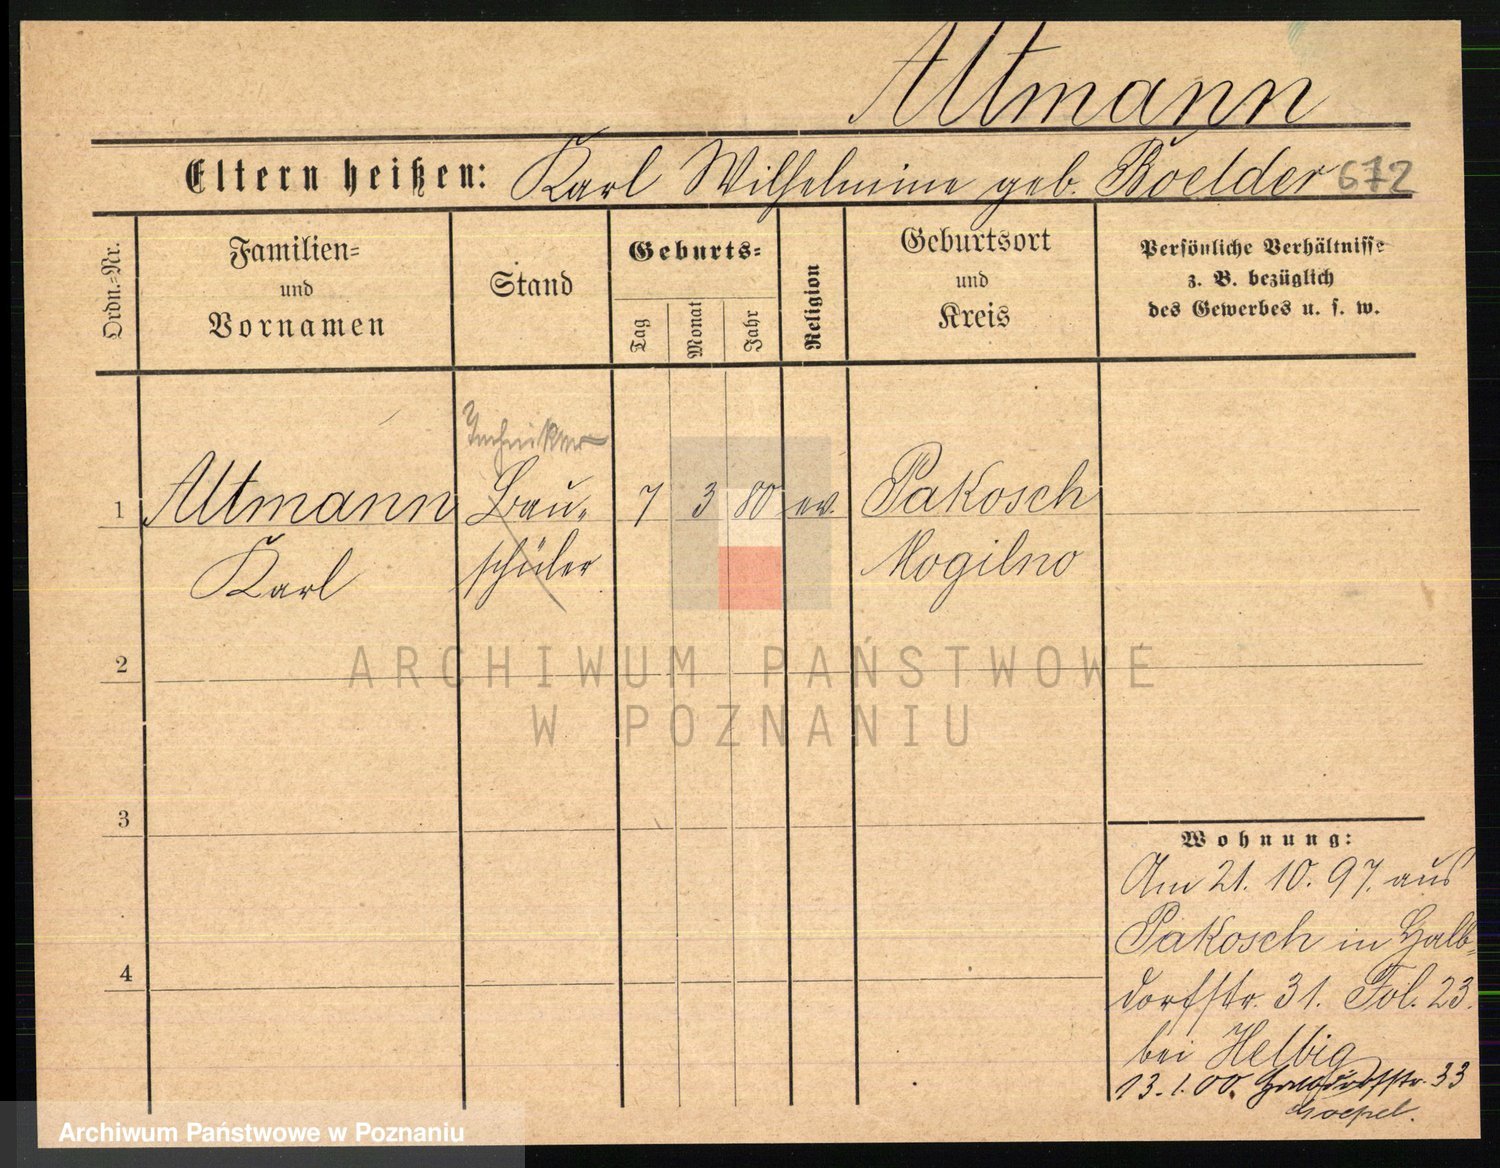 Altmann
Eltern heißen: Karl Wilhelmine geb. Boelder 672
Ordn.-Nr.
Familien-
und
Vornamen
Stand
Geburts-
Tag
Monat
Jahr
Religion
Geburtsort
und
Kreis
Persönliche Verhältnisse
z. B. bezüglich
des Gewerbes u. s. w.
Techniker
1 Altmann Bau- 7 3 80 ev. Pakosch
Karl schüler Mogilno
2
ARCHIWUM PAŃSTWOWE
W POZNANIU
3
Wohnung:
Am 21. 10. 97. aus
Pakosch in Halb-
dorfstr. 31. Fol. 23.
4
bei Helbig
13. 1. 00. Halbdorfstr. 33
Archiwum Państwowe w Poznaniu